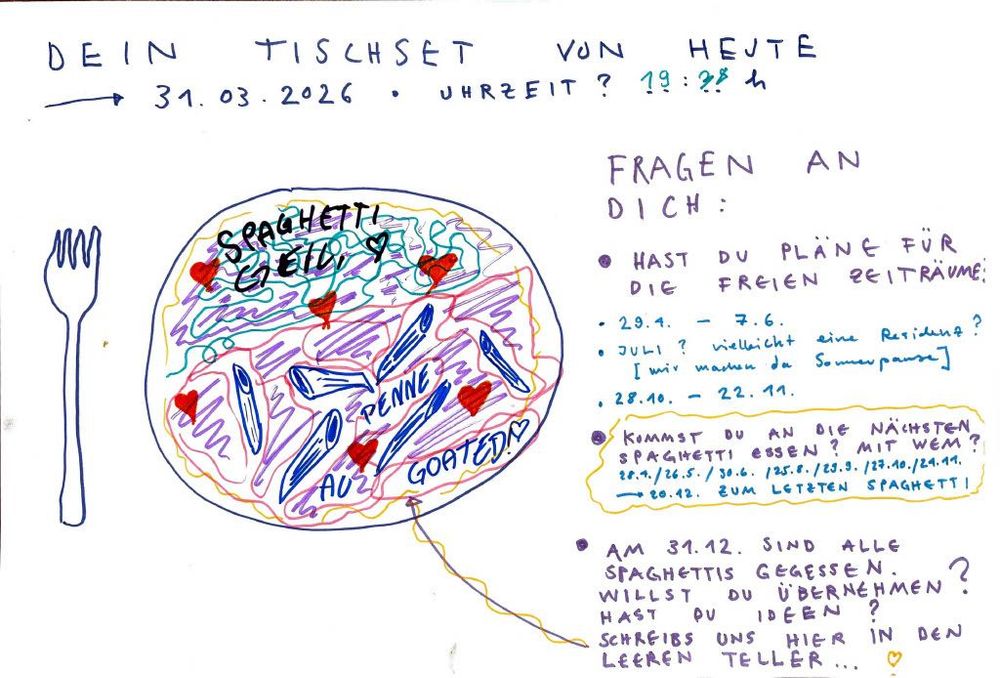 DEIN TISCHSET VON HEUTE
→ 31.03.2026 • UHRZEIT? 19: h
SPAGHETTI
GEIL, ♡
PENNE
AU GOATED! ♡
FRAGEN AN
DICH:
• HAST DU PLÄNE FÜR
DIE FREIEN ZEITRÄUME:
• 29.4. – 7.6.
• JULI? vielleicht eine Residenz?
[wir machen da Sommerpause]
• 28.10. – 22.11.
• KOMMST DU AN DIE NÄCHSTEN
SPAGHETTI ESSEN? MIT WEM?
28.4./26.5./30.6./25.8./29.9./27.10./24.11.
→ 20.12. ZUM LETZTEN SPAGHETTI
• AM 31.12. SIND ALLE
SPAGHETTIS GEGESSEN.
WILLST DU ÜBERNEHMEN?
HAST DU IDEEN?
SCHREIBS UNS HIER IN DEN
LEEREN TELLER... ♡